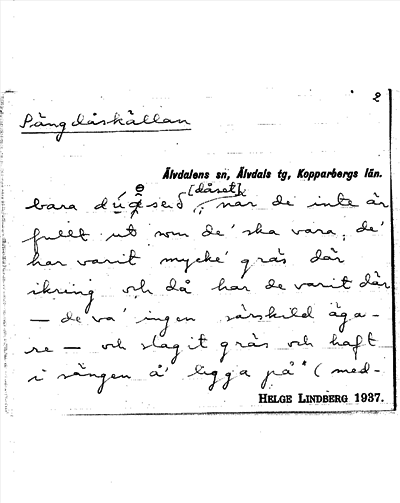 2
Sängdåskällan
Älvdalens sn, Älvdals tg, Kopparbergs län.
[dåset]
bara när de inte är
fullt ut som de' ska vara, de'
har varit mycke' gräs där
ikring och då har de varit där
— de va' ingen särskild äga-
re — och slagit gräs och haft
i sängen å' ligga på" (med-
HELGE LINDBERG 1937.